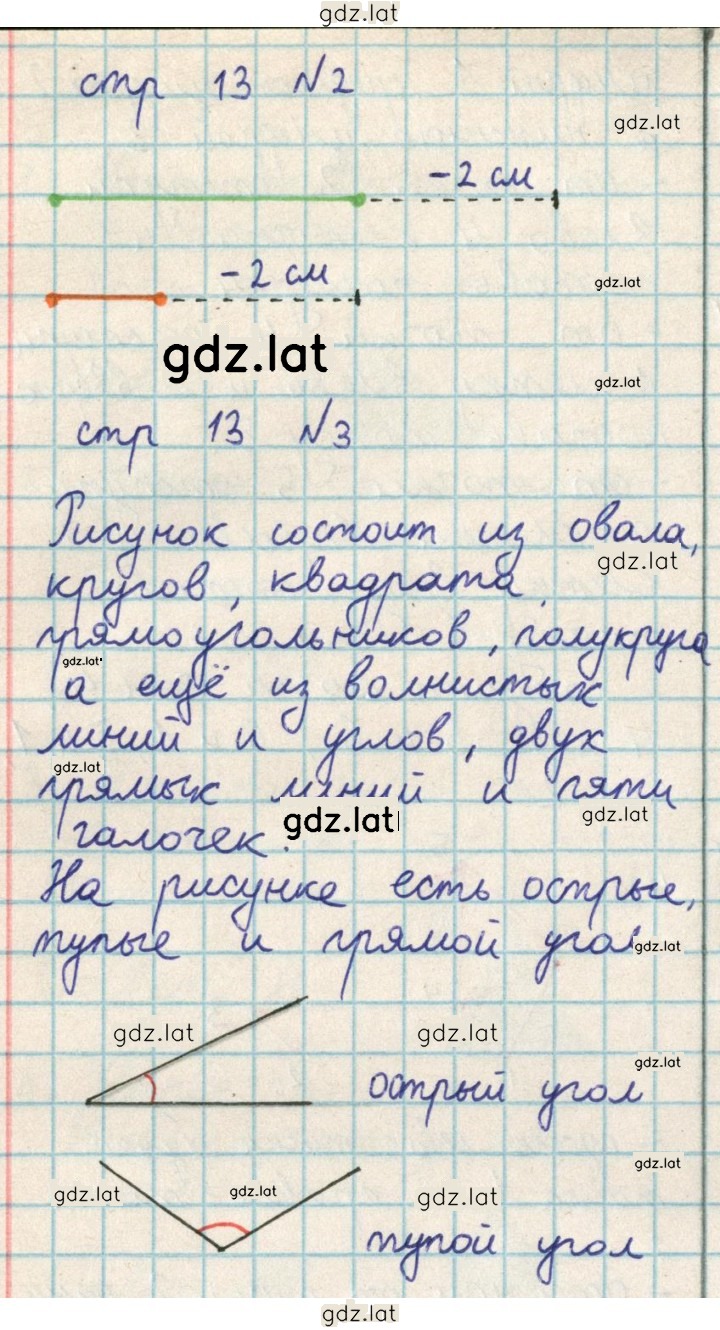 gdz.lat
стр 13 №2
gdz.lat
-2 см
-2 см
gdz.lat
gdz.lat
gdz.lat
стр 13 №3
Рисунок состоит из овала,
gdz.lat
кругов, квадрата,
прямоугольников, полукруга
gdz.lat
а ещё из волнистых
линий и углов, двух
gdz.lat
прямых линий и пяти
gdz.lat
gdz.lat
галочек.
На рисунке есть острые,
тупые и прямой угол
gdz.lat
gdz.lat
gdz.lat
gdz.lat
острый угол
gdz.lat
gdz.lat
gdz.lat
gdz.lat
тупой угол
gdz.lat